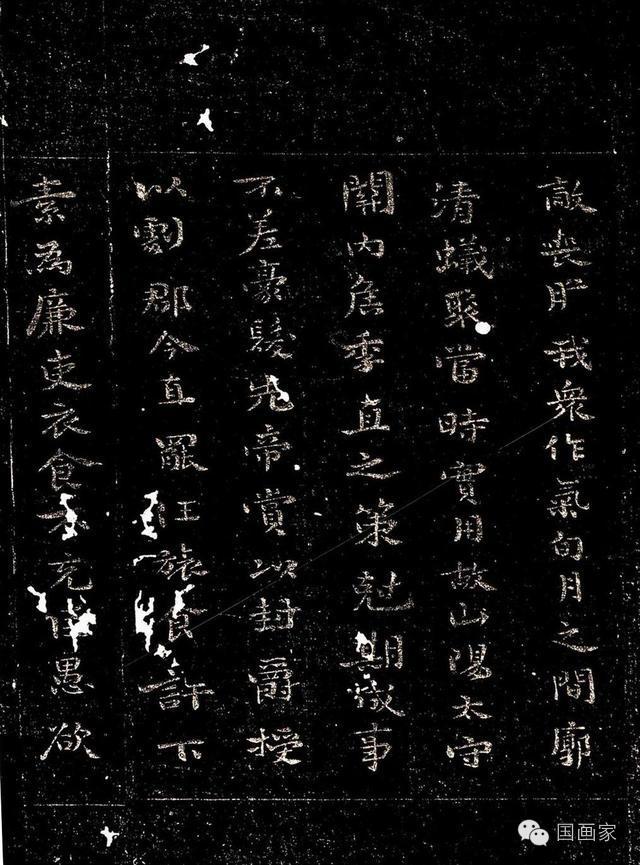 敵喪胆我衆作氣旬月之間廓
清蟻聚當時實用故山陽太守
關內侯季直之策尅期成事
不差豪髮先帝賞以封爵授
以劇郡今直罷任旅食許下
素為廉吏衣食不充臣愚欲
国画家